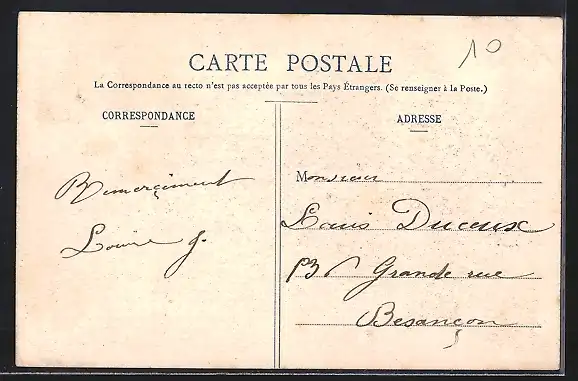 10
CARTE POSTALE
La Correspondance au recto n'est pas acceptée par tous les Pays Étrangers. (Se renseigner à la Poste.)
CORRESPONDANCE
ADRESSE
Remerciment
Louise J.
Monsieur
Louis Duceux
Grande rue
Besançon